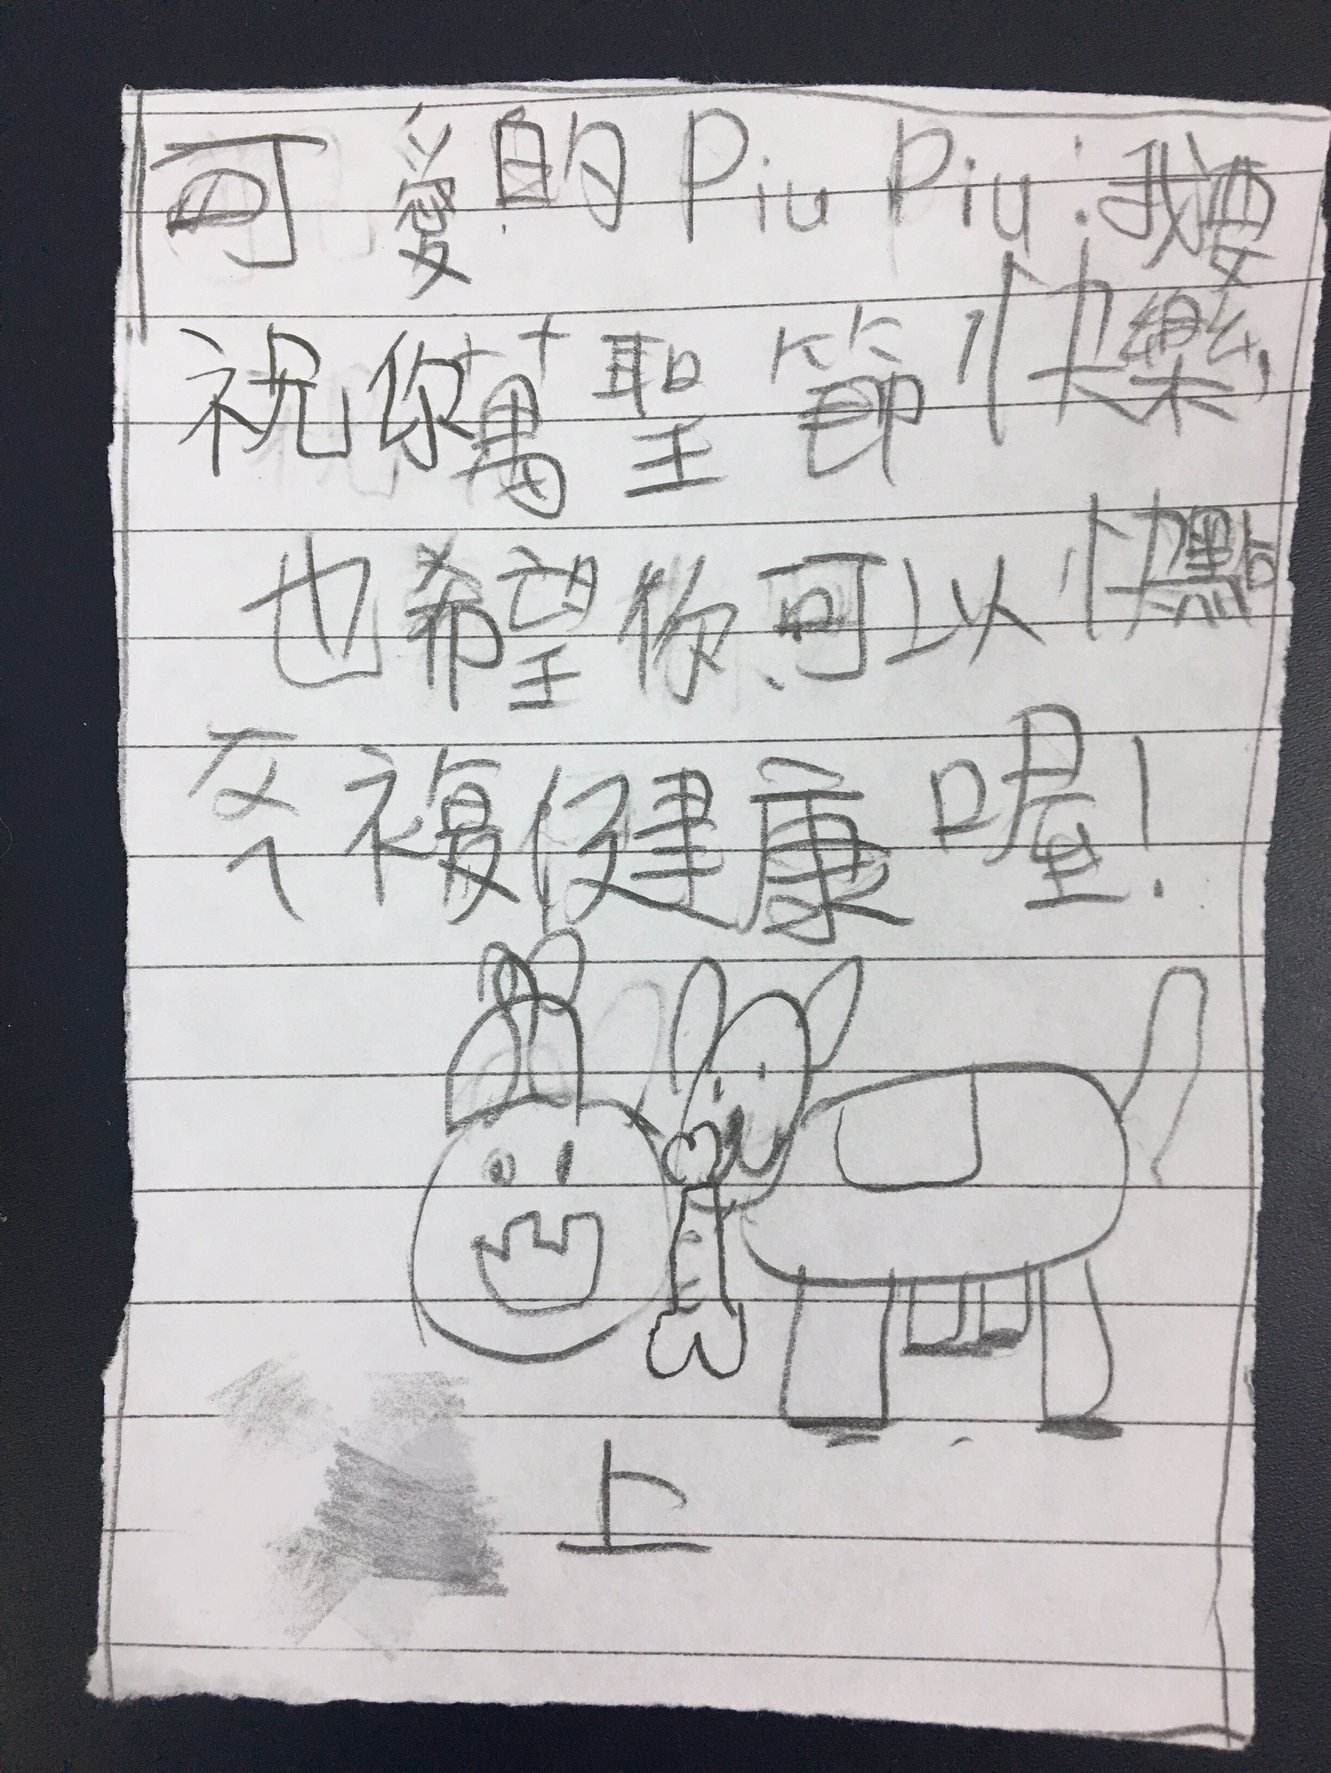 可愛的 Piu Piu:我要
祝你萬聖節快樂,
也希望你可以快點
複健康喔!
上